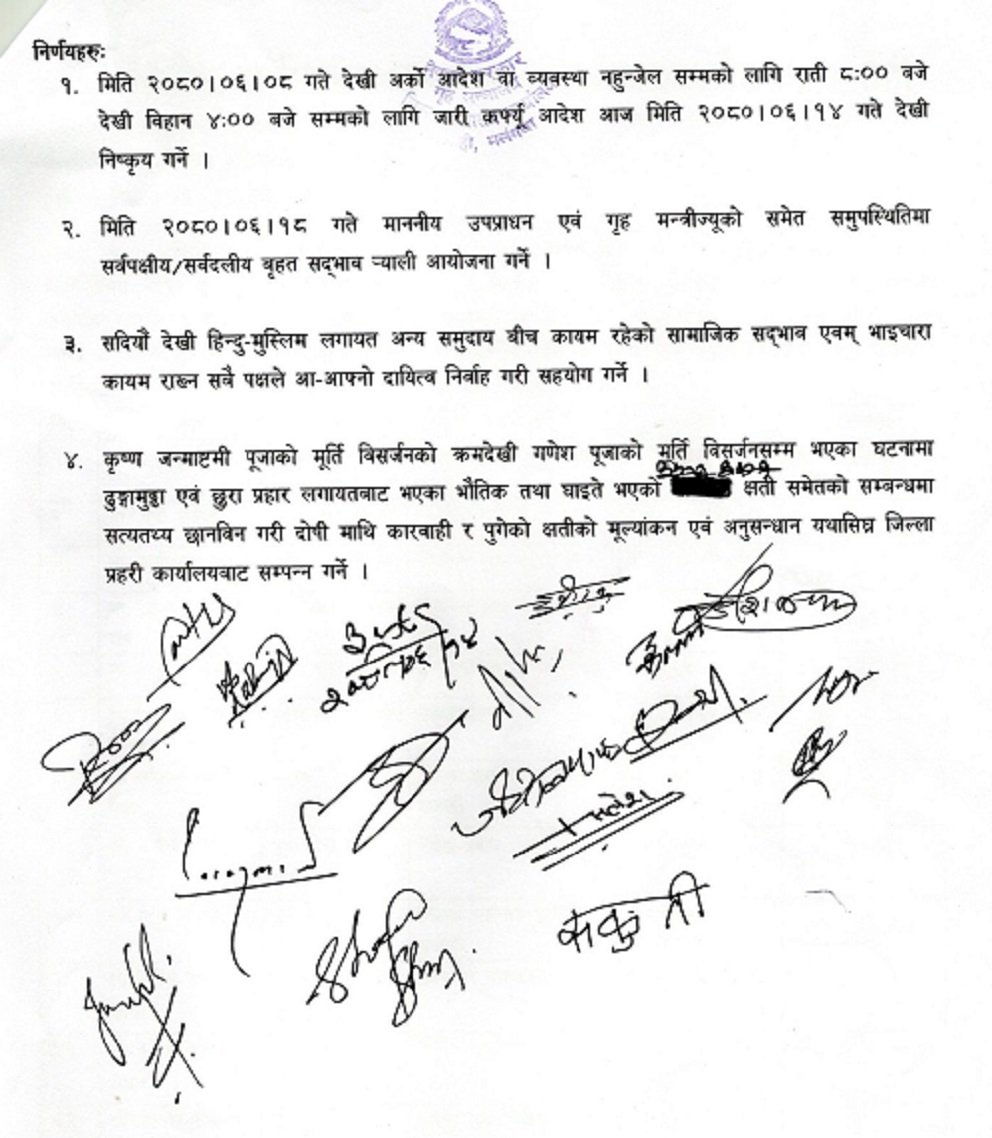 निर्णयहरुः
१. मिति २०८०।०६।०८ गते देखी अर्को आदेश वा व्यवस्था नहुन्जेल सम्मको लागि राती ८:०० बजे
देखी विहान ४:०० बजे सम्मको लागि जारी कर्फ्यू आदेश आज मिति २०८०।०६।१४ गते देखी
निष्कृय गर्ने ।
२. मिति २०८०।०६।१८ गते माननीय उपप्राधन एवं गृह मन्त्रीज्यूको समेत समुपस्थितिमा
सर्वपक्षीय/सर्वदलीय बृहत सद्‌भाव ऱ्याली आयोजना गर्ने ।
३. सदियौं देखी हिन्दु-मुस्लिम लगायत अन्य समुदाय बीच कायम रहेको सामाजिक सद्‌भाव एवम् भाइचारा
कायम राख्न सवै पक्षले आ-आफ्नो दायित्व निर्वाह गरी सहयोग गर्ने ।
४. कृष्ण जन्माष्टमी पूजाको मूर्ति विसर्जनको क्रमदेखी गणेश पूजाको मूर्ति विसर्जनसम्म भएका घटनामा
ढुङ्गामुढा एवं छुरा प्रहार लगायतबाट भएका भौतिक तथा घाइते भएको क्षती समेतको सम्बन्धमा
सत्यतथ्य छानविन गरी दोषी माथि कारवाही र पुगेको क्षतीको मूल्यांकन एवं अनुसन्धान यथासिघ्र जिल्ला
प्रहरी कार्यालयवाट सम्पन्न गर्ने ।